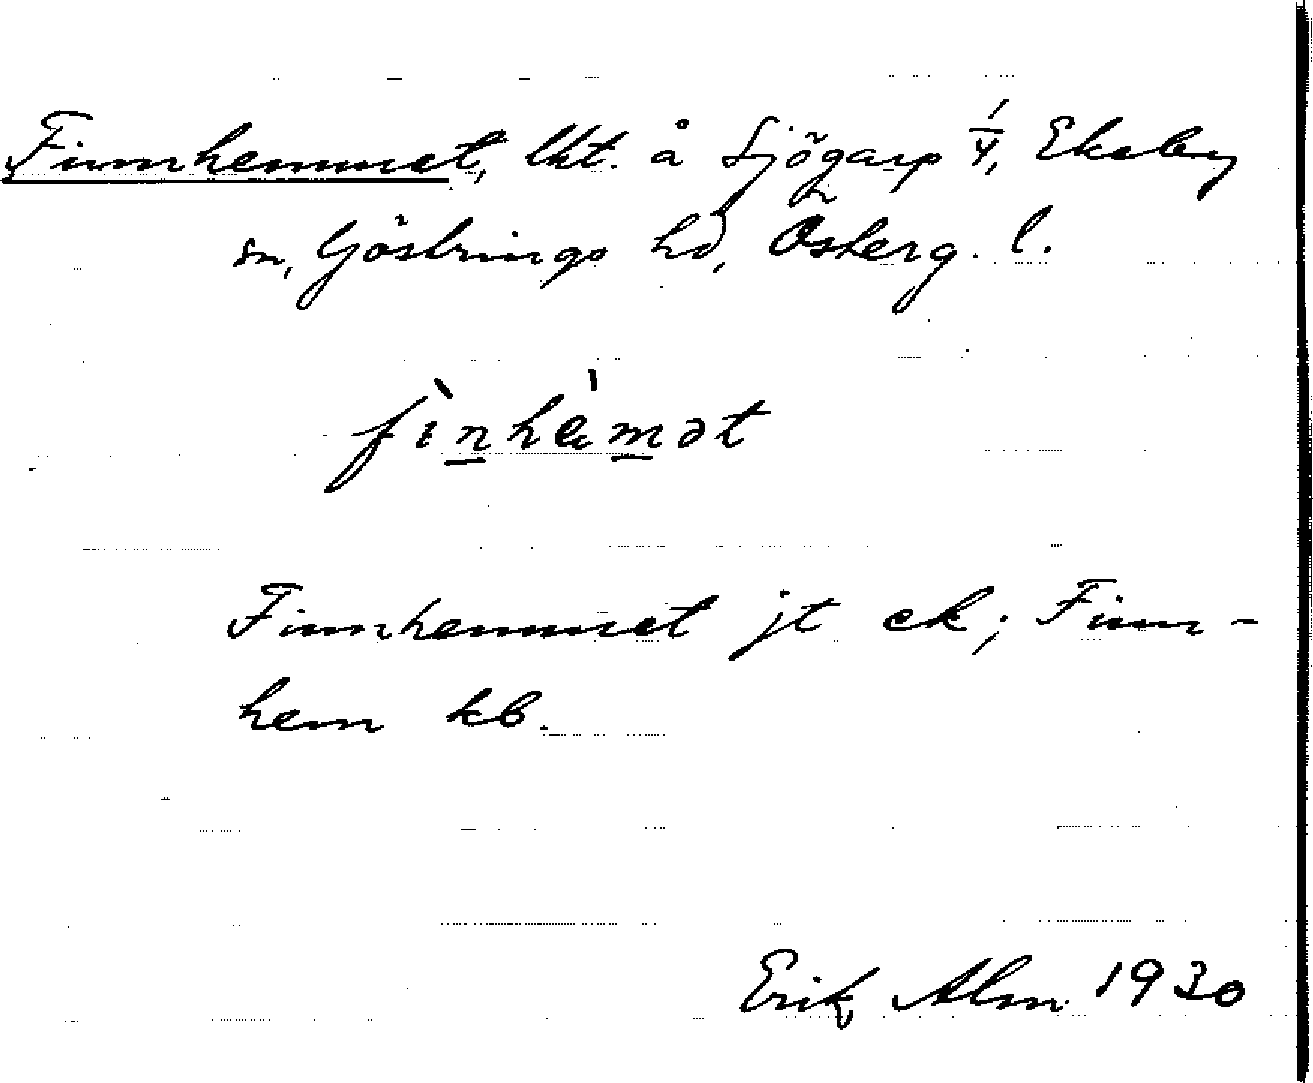 Finnhemmet, lht. å Sjögarp 1/4, Ekeby
sn, Göstrings hd, Österg. l.
fìnhèmət
Finnhemmet jt ek; Finn-
hem kb.
Erik Alm 1930